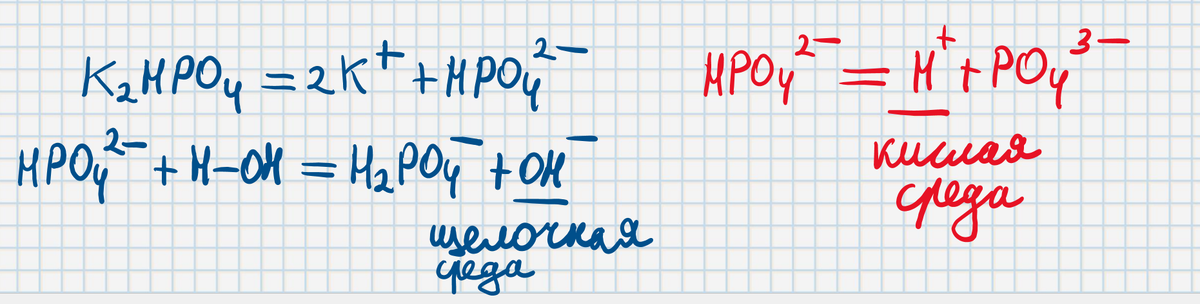 K₂HPO₄ = 2K⁺ + HPO₄²⁻
HPO₄²⁻ + H–OH = H₂PO₄⁻ + OH⁻
щелочная
среда
HPO₄²⁻ = H⁺ + PO₄³⁻
кислая
среда